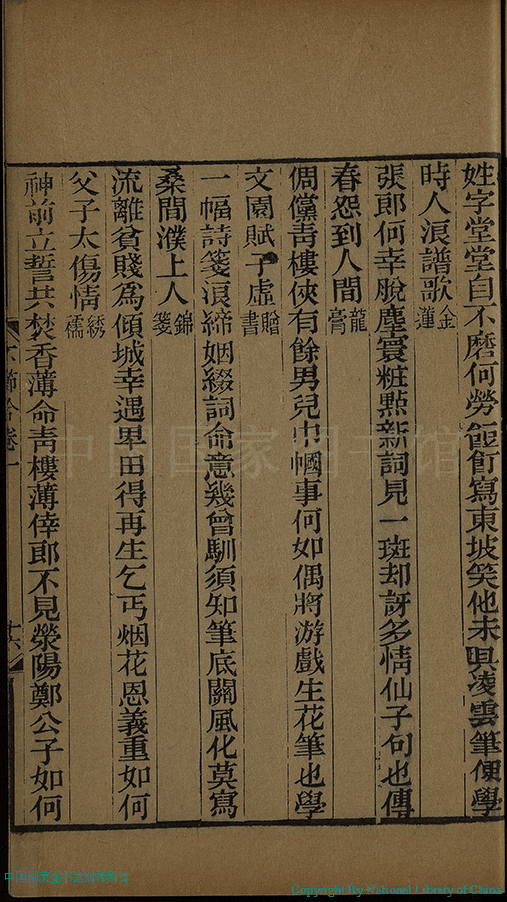 姓字堂堂自不磨何勞飣餖寫東坡笑他未具凌雲筆便學
時人浪譜歌金蓮
張郎何幸脫塵寰粧點新詞見一斑却訝多情仙子句也傳
春怨到人間龍膏
倜儻青樓俠有餘男兒巾幗事何如偶將游戲生花筆也學
文園賦子虛贈書
一幅詩箋浪締姻綴詞命意幾曾馴須知筆底關風化莫寫
桑間濮上人錦箋
流離貧賤爲傾城幸遇畢田得再生乞丐烟花恩義重如何
父子太傷情綉襦
神前立誓共焚香薄命青樓薄倖郎不見滎陽鄭公子如何
卷一
十六
中国国家图书馆
Copyright By National Library of China